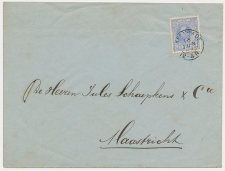 De Heeren Jules Schaepkens & Cie
Maastricht